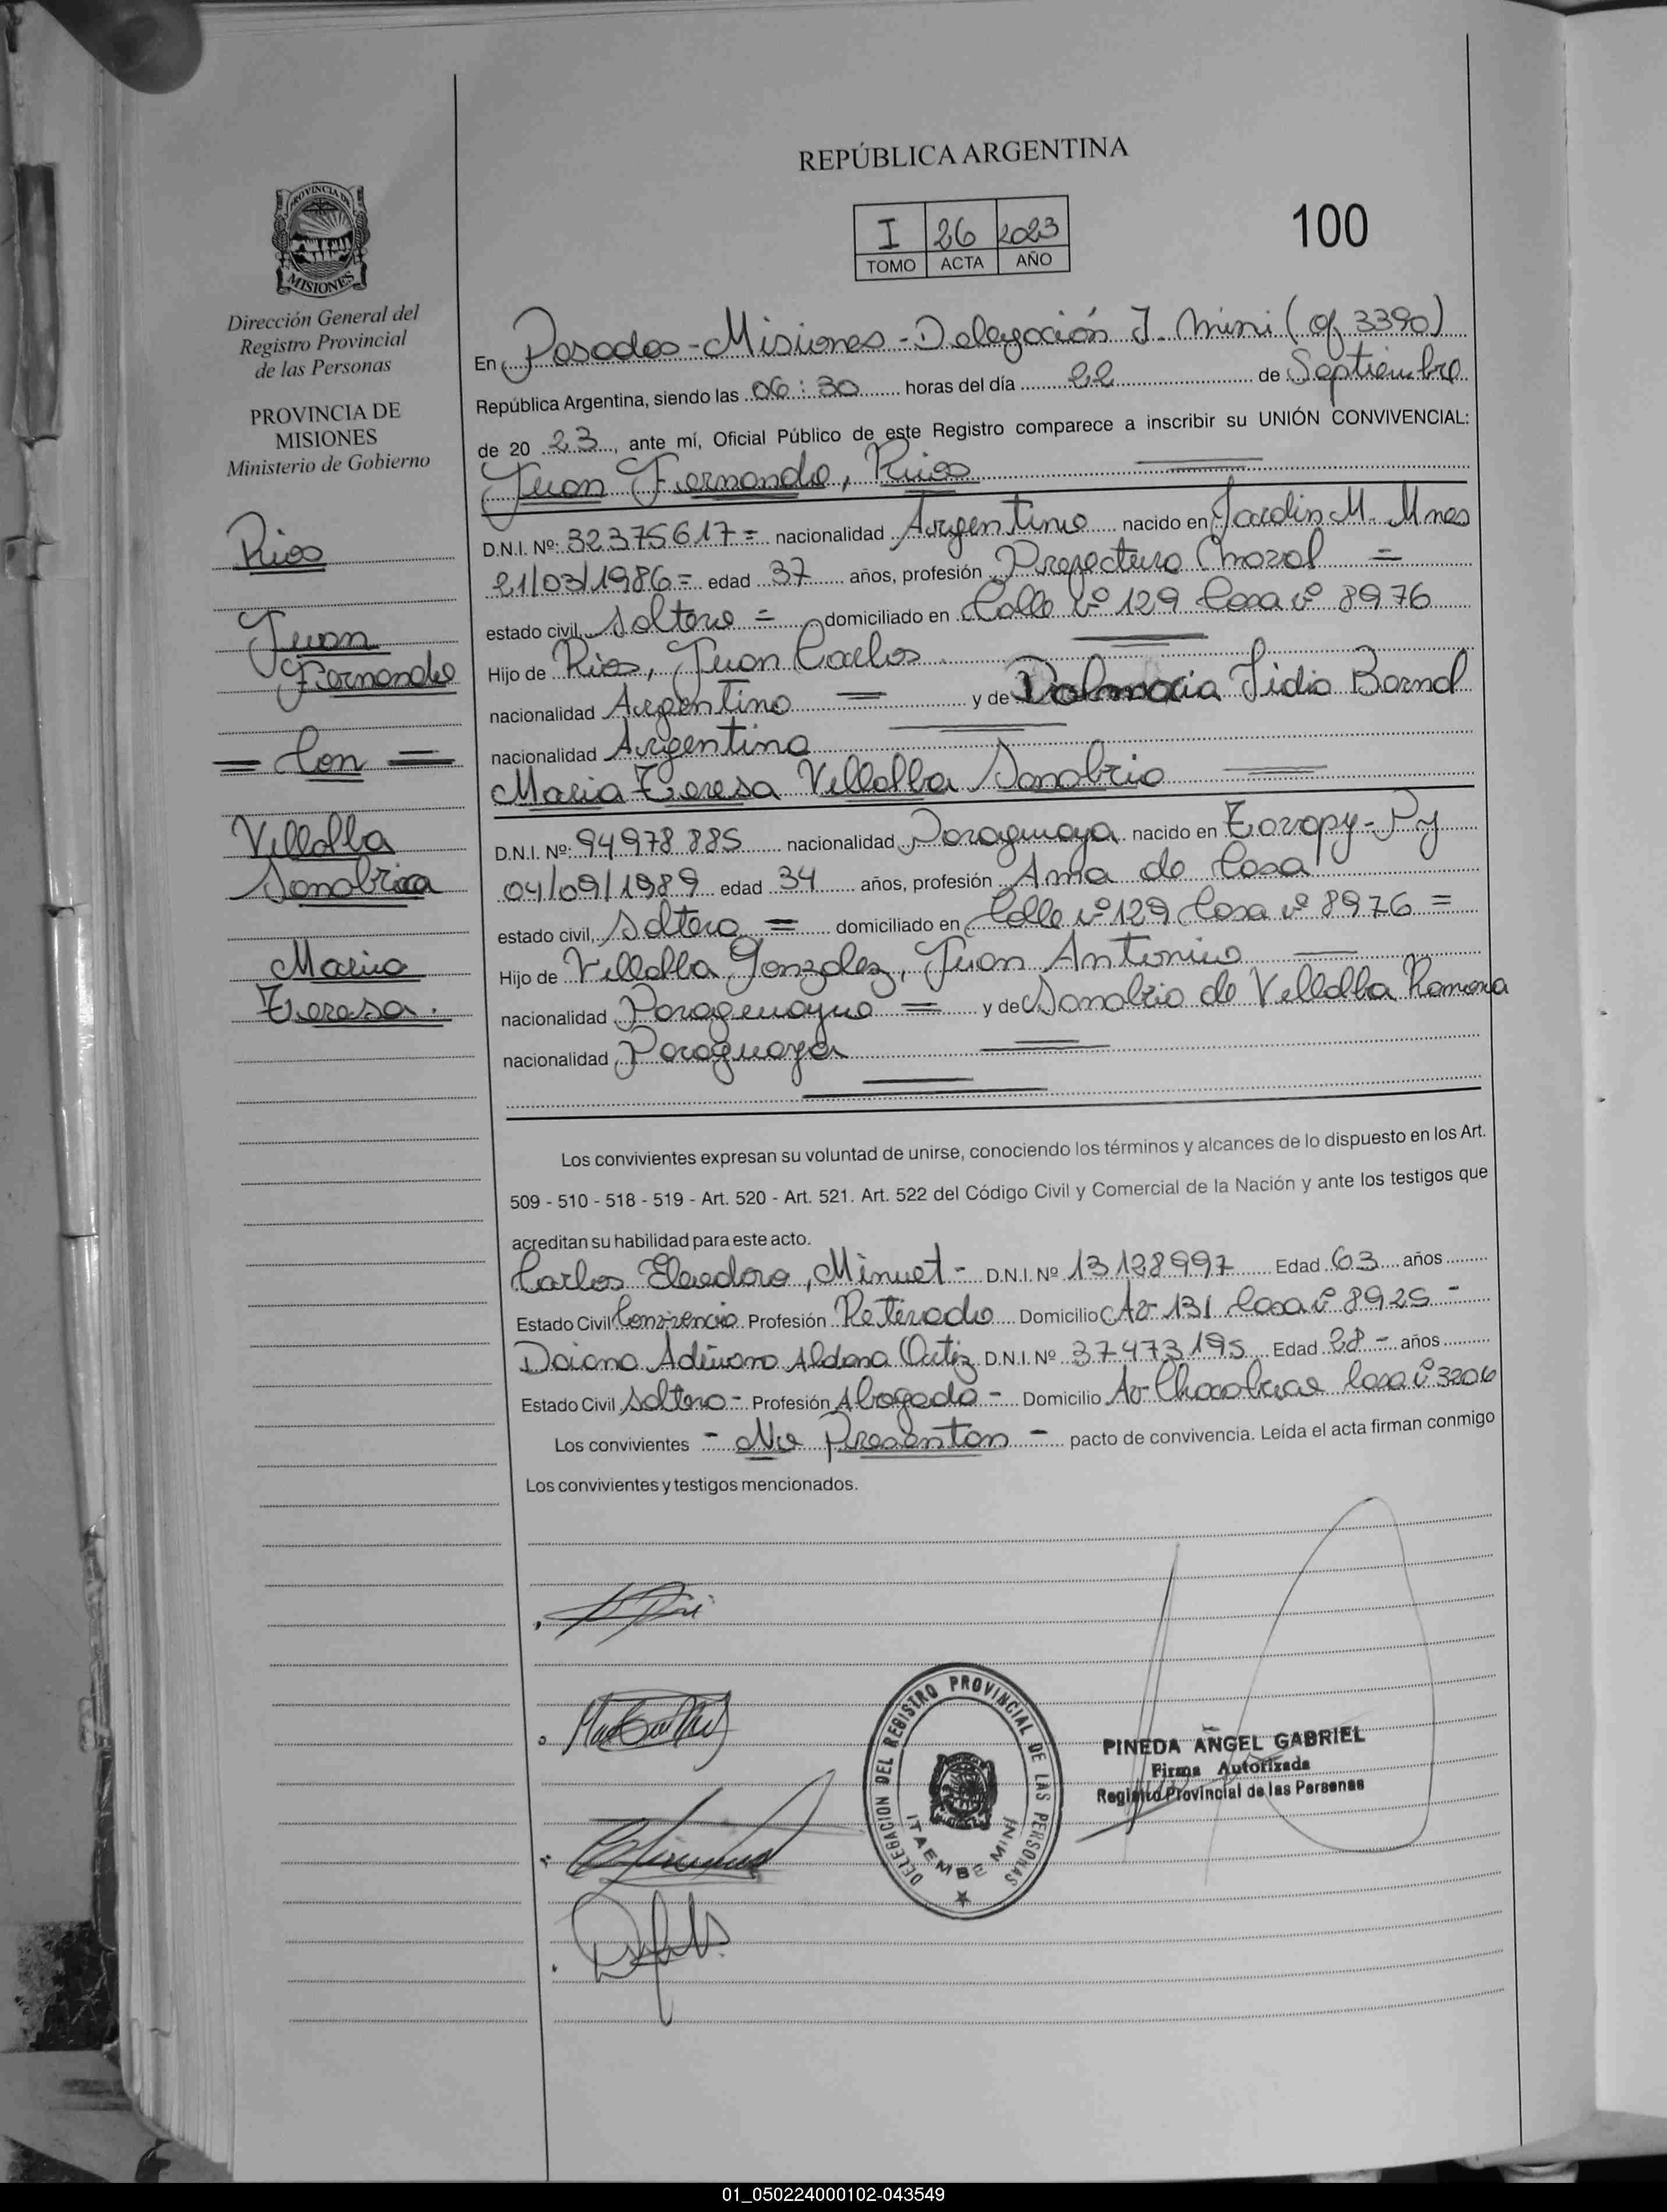 REPÚBLICA ARGENTINA
I 26 2023
TOMO ACTA AÑO
100
PROVINCIA DE
MISIONES
Dirección General del
Registro Provincial
de las Personas
PROVINCIA DE
MISIONES
Ministerio de Gobierno
Rios
Juan
Fernando
= Con =
Villalba
Sanabria
Maria
Teresa.
En Posadas - Misiones - Delegación I. Mini (of 3390)
República Argentina, siendo las 06:30 horas del día 22 de Septiembre
de 20 23, ante mí, Oficial Público de este Registro comparece a inscribir su UNIÓN CONVIVENCIAL:
Juan Fernando, Rios
D.N.I. Nº: 32375617 = nacionalidad Argentino nacido en Jardin M. Mnes
21/03/1986 = edad 37 años, profesión Prefectura Naval =
estado civil, soltero = domiciliado en Calle Nº 129 Casa nº 8976
Hijo de Rios, Juan Carlos
nacionalidad Argentino = y de Dalmacia Lidia Bernal
nacionalidad Argentina
Maria Teresa Villalba Sanabria
D.N.I. Nº: 94978885 nacionalidad Paraguaya nacido en Tavapy - Py
04/09/1989 edad 34 años, profesión Ama de Casa
estado civil, Soltera = domiciliado en Calle nº 129 Casa nº 8976 =
Hijo de Villalba Gonzalez, Juan Antonio
nacionalidad Paraguayo = y de Sanabria de Villalba Ramona
nacionalidad Paraguaya
Los convivientes expresan su voluntad de unirse, conociendo los términos y alcances de lo dispuesto en los Art.
509 - 510 - 518 - 519 - Art. 520 - Art. 521. Art. 522 del Código Civil y Comercial de la Nación y ante los testigos que
acreditan su habilidad para este acto.
Carlos Eleodoro, Minuet - D.N.I. Nº 13128997 Edad 63 años
Estado Civil Convivencia Profesión Retirado Domicilio Av 131 Casa nº 8925 -
Daiana Adriana Aldana Ortiz D.N.I. Nº 37473195 Edad 28 - años
Estado Civil Soltera - Profesión Abogada - Domicilio Av Chacabuco Casa nº 3206
Los convivientes - No Presentan - pacto de convivencia. Leída el acta firman conmigo
Los convivientes y testigos mencionados.
DELEGACION DEL REGISTRO PROVINCIAL DE LAS PERSONAS
ITAEMBE MINI
PINEDA ANGEL GABRIEL
Firma Autorizada
Registro Provincial de las Personas
01_050224000102-043549